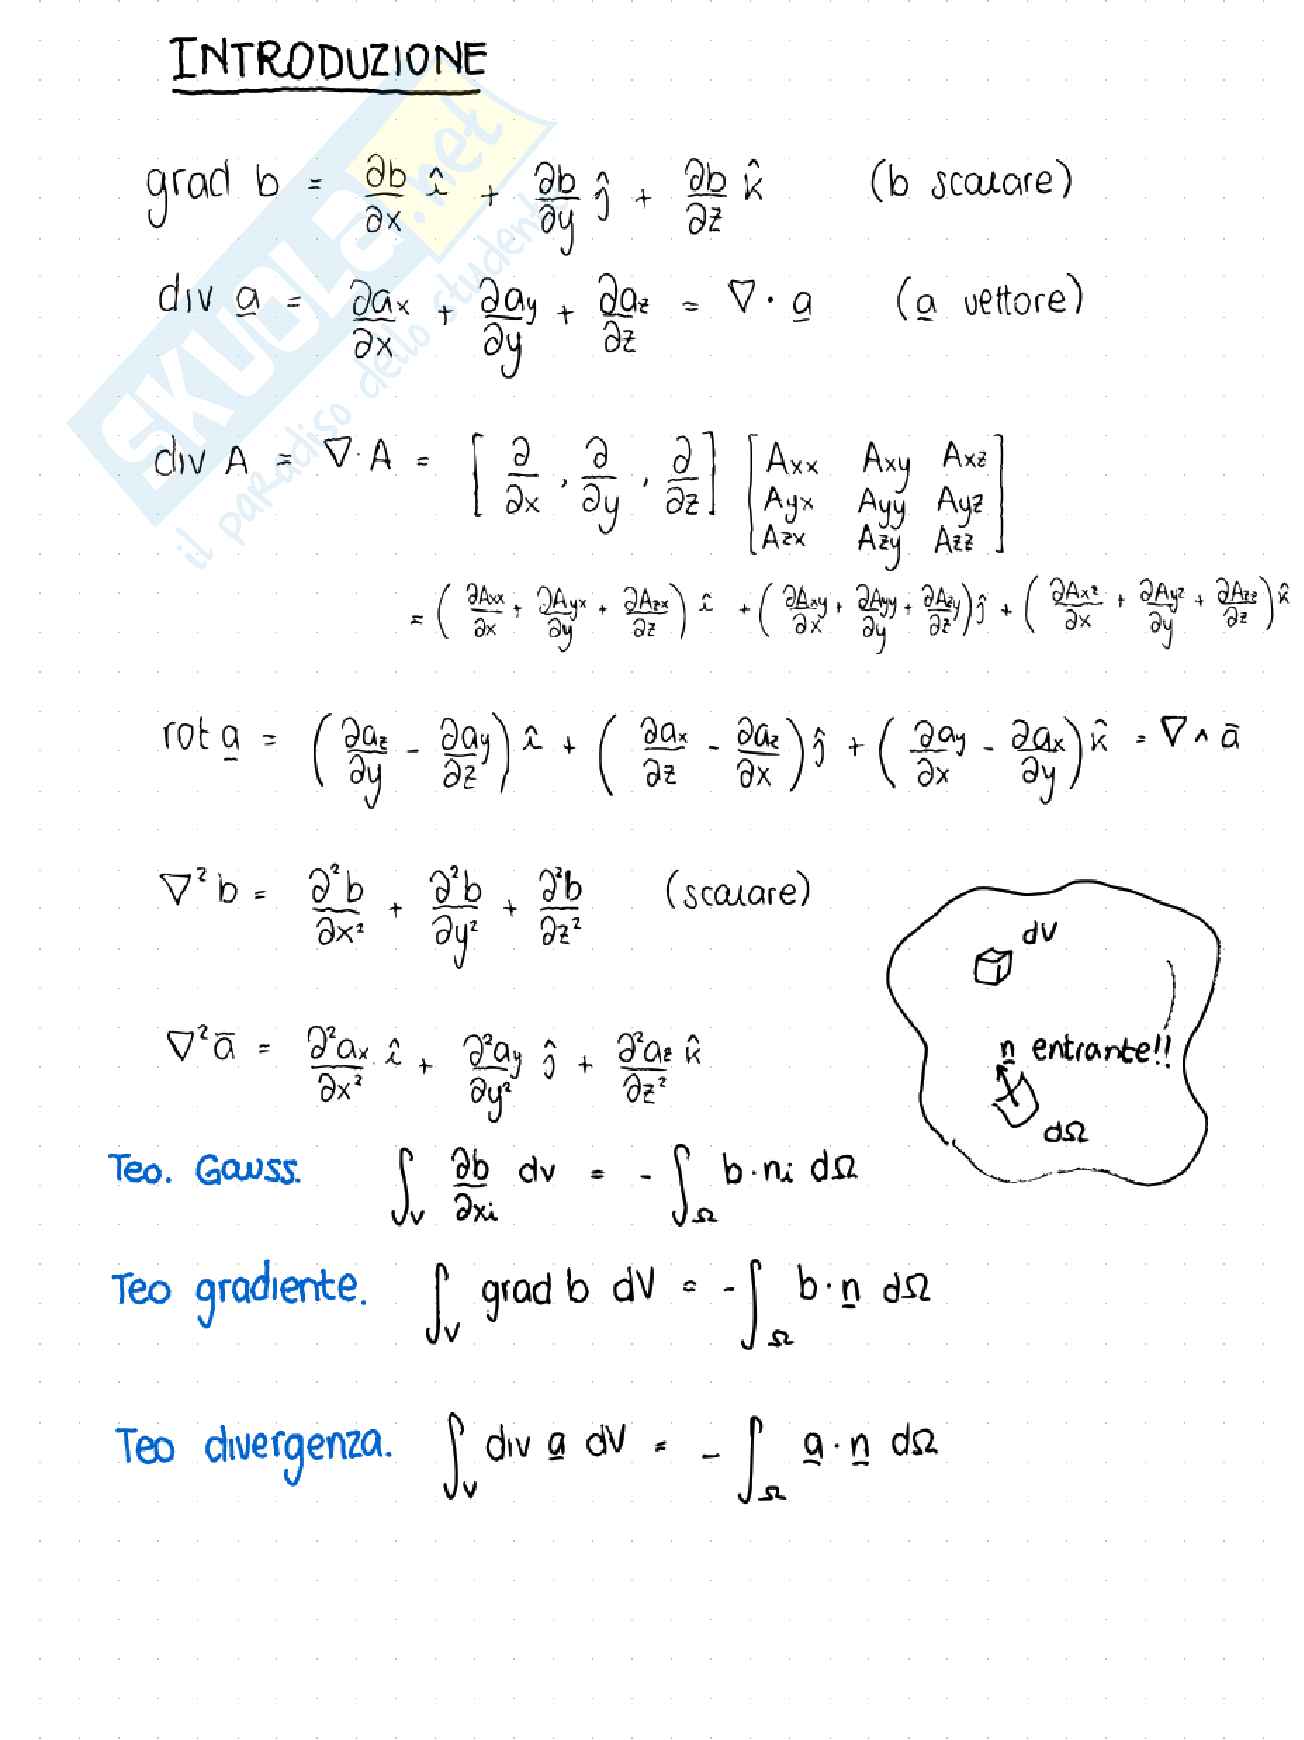 INTRODUZIONE
grad b = ∂b/∂x î + ∂b/∂y ĵ + ∂b/∂z k̂ (b scalare)
div a̲ = ∂ax/∂x + ∂ay/∂y + ∂az/∂z = ∇ · a̲ (a̲ vettore)
div A = ∇ · A = [∂/∂x , ∂/∂y , ∂/∂z] [Axx Axy Axz
Ayx Ayy Ayz
Azx Azy Azz]
= (∂Axx/∂x + ∂Ayx/∂y + ∂Azx/∂z) î + (∂Axy/∂x + ∂Ayy/∂y + ∂Azy/∂z) ĵ + (∂Axz/∂x + ∂Ayz/∂y + ∂Azz/∂z) k̂
rot a̲ = (∂az/∂y - ∂ay/∂z) î + (∂ax/∂z - ∂az/∂x) ĵ + (∂ay/∂x - ∂ax/∂y) k̂ = ∇ ∧ ā
∇²b = ∂²b/∂x² + ∂²b/∂y² + ∂²b/∂z² (scalare)
dV
∇²ā = ∂²ax/∂x² î + ∂²ay/∂y² ĵ + ∂²az/∂z² k̂
n̲ entrante!!
dΩ
Teo. Gauss. ∫V ∂b/∂xi dv = - ∫Ω b · ni dΩ
Teo gradiente. ∫V grad b dV = - ∫Ω b · n̲ dΩ
Teo divergenza. ∫V div a̲ dV = - ∫Ω a̲ · n̲ dΩ
SKUOLA.net
il paradiso dello studente